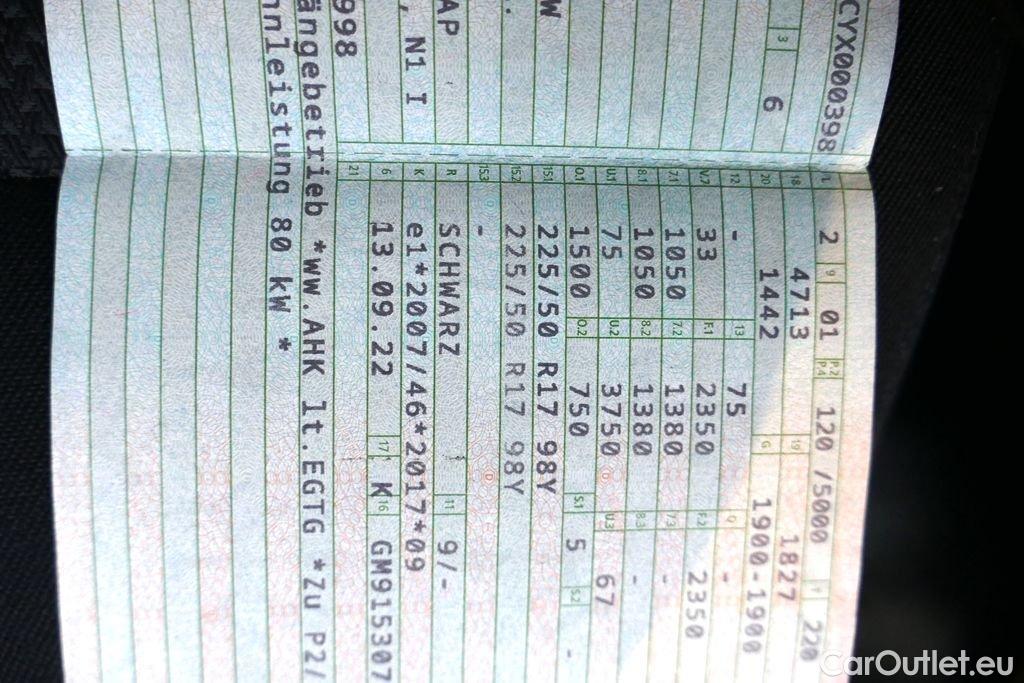 CYX000398 L 2 9 01 P.2 P.4 120 /5000 T 220
18 4713 19 1827
3 6 20 1442 G 1900-1900
12 - 13 75 Q -
V.7 33 F.1 2350 F.2 2350
7.1 1050 7.2 1380 7.3 -
8.1 1050 8.2 1380 8.3 -
U.1 75 U.2 3750 U.3 67
O.1 1500 O.2 750 S.1 5 S.2 -
W 15.1 225/50 R17 98Y
. 15.2 225/50 R17 98Y
15.3 -
AP R SCHWARZ 11 9/-
, N1 I K e1*2007/46*2017*09
6 13.09.22 17 K 16 GM915307
998 21
ängebetrieb *ww.AHK lt.EGTG *Zu P2/
nnleistung 80 kW *
CarOutlet.eu